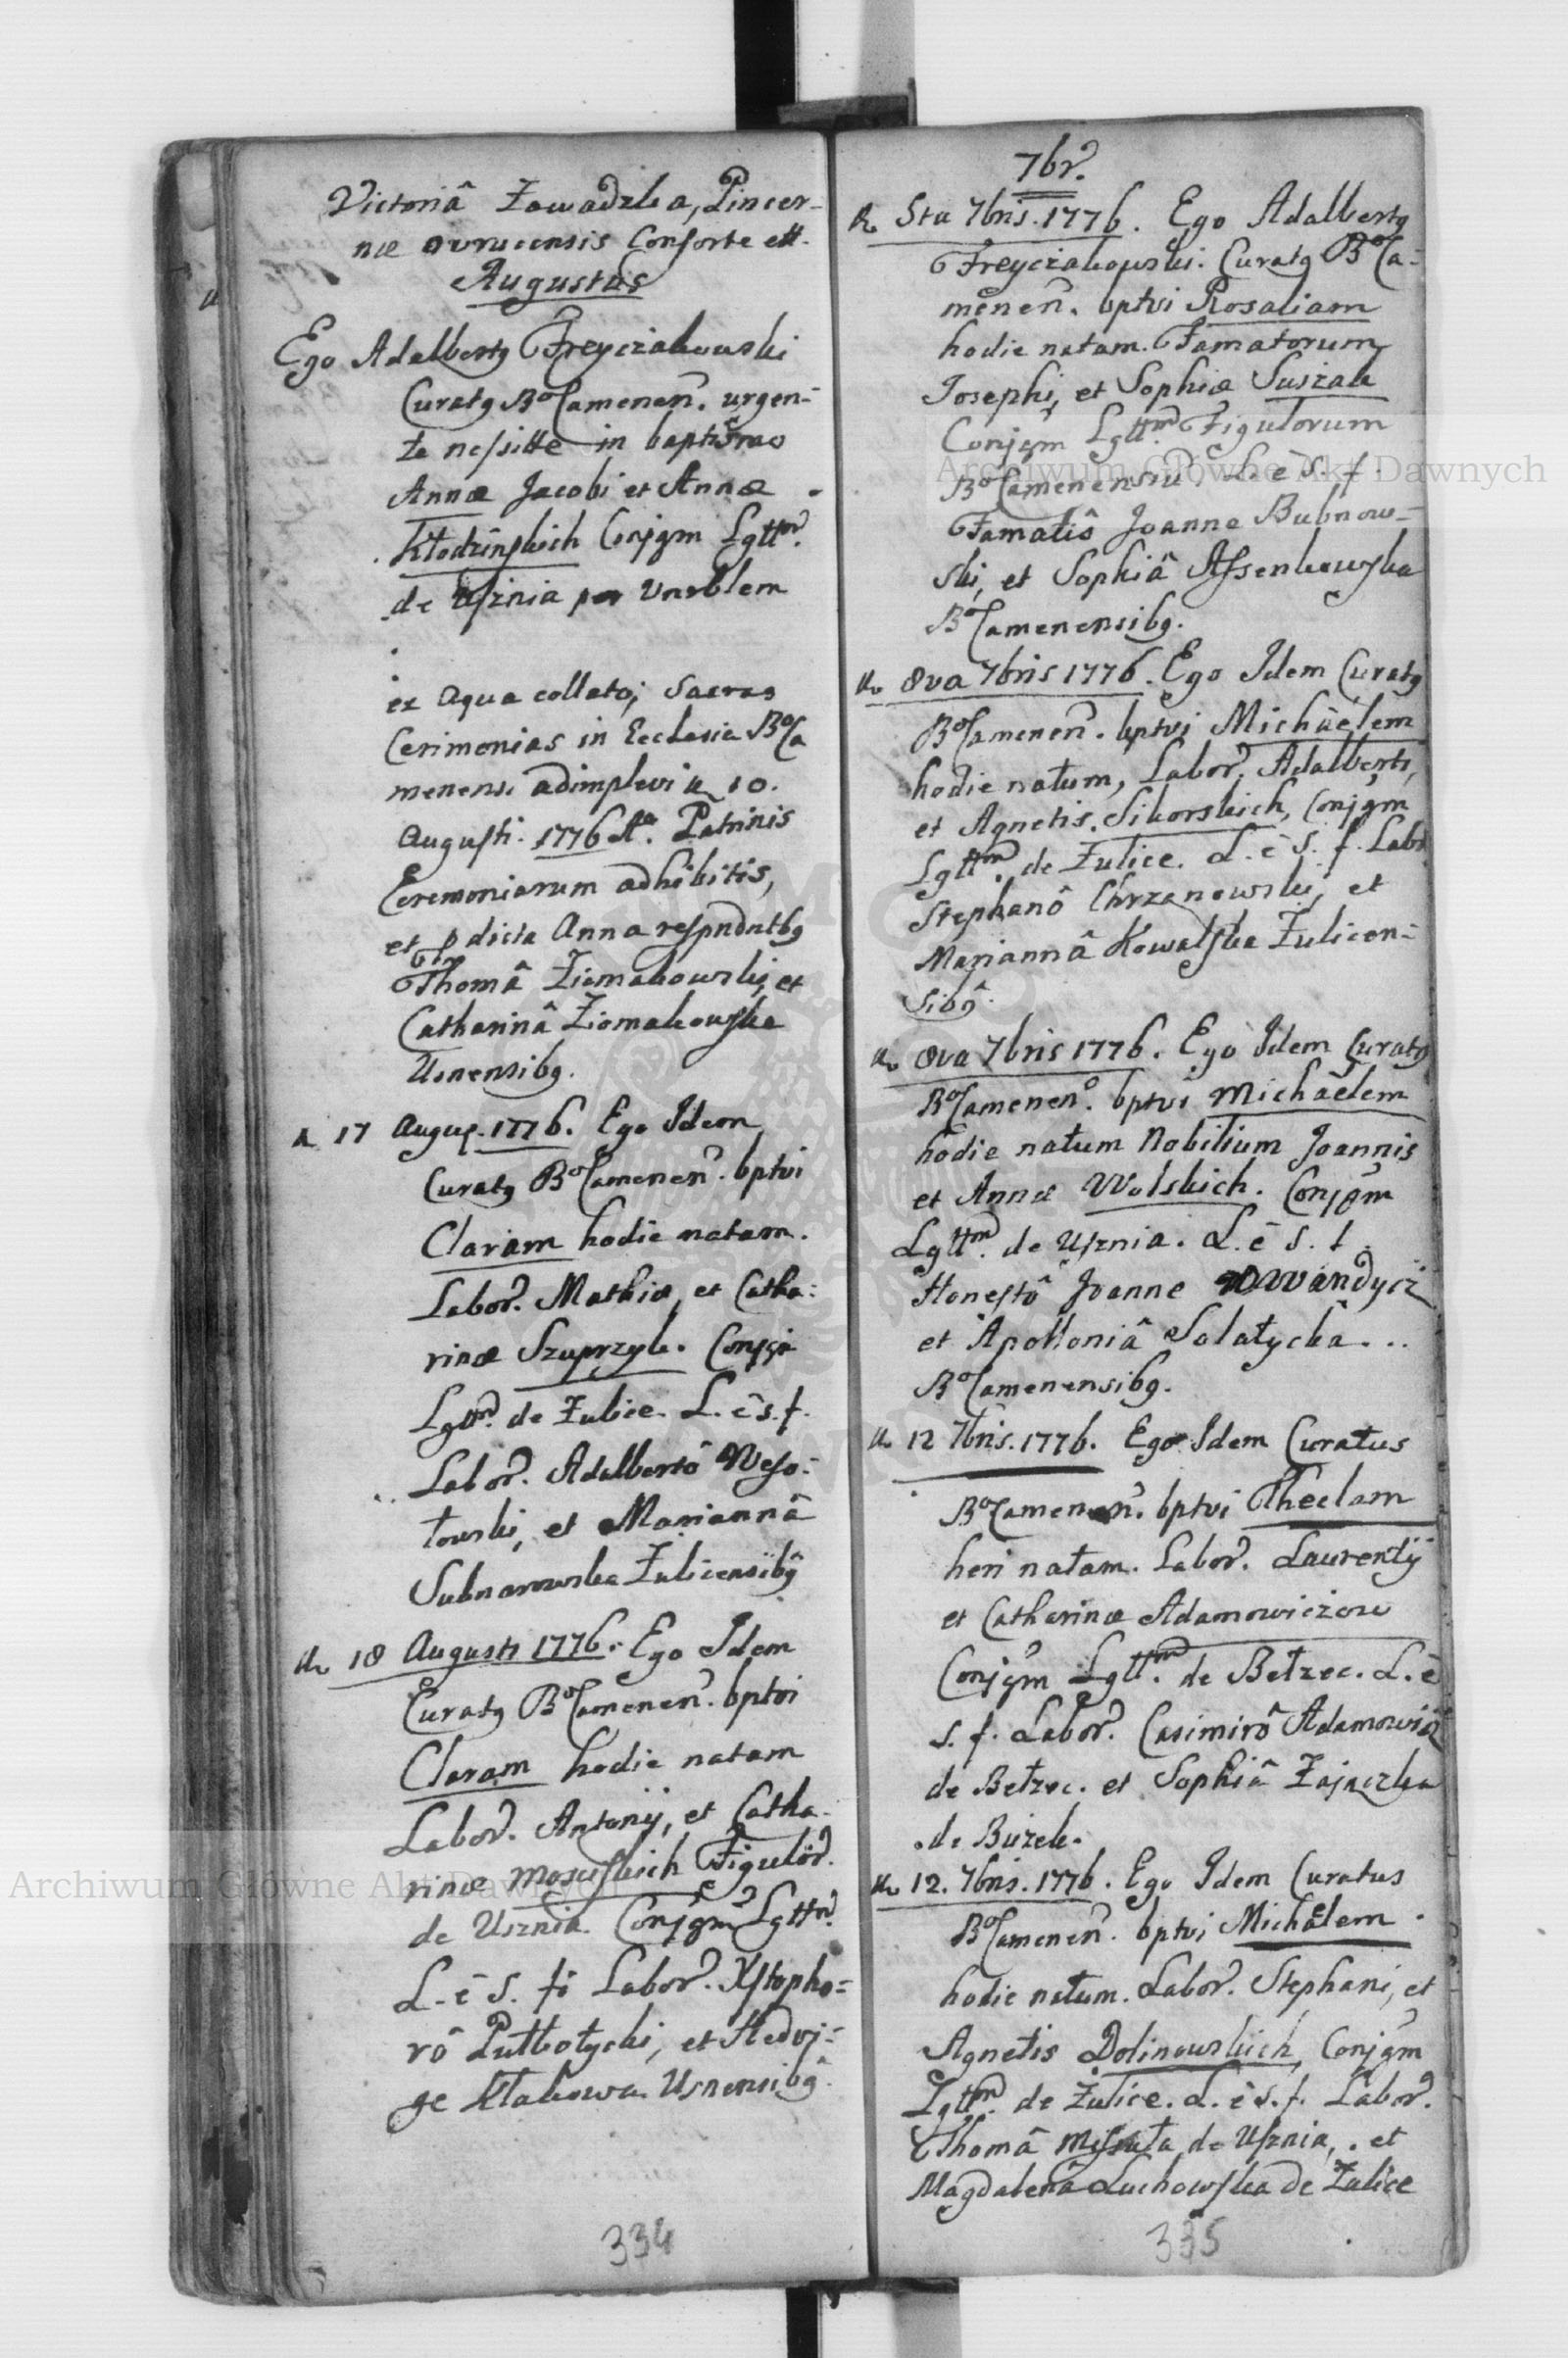 Victoriâ Zawadzka, Pincer-
næ ovrucensis Consorte ett.
Augustus
Ego Adalbertg Freyczakowski
Curatg BoCamenen. urgen-
te nessitte in baptismo
Annæ Jacobi et Annæ
Kłodzinskich Conjgm Lgttm.
de Usznia per
ex aqua collato, Sacras
Cerimonias in Ecclesia BoCa
menensi adimplevi 10.
Augusti. 1776 Ao. Patrinis
Ceremoniarum adhibitis,
et pdicta Anna respndntbg
Thomâ Ziomakowski, et
Catharinâ Ziomakowska
Usnensibg.
17 Augus. 1776. Ego Idem
Curatg BoCamenen. bptvi
Claram hodie natam.
Labor. Mathiæ, et Catha:
rinæ Szuprzyk. Conjgm
Lgttm. de Żulice. L. è s. f.
Labor. Adalbertô Weso:
łowski, et Mariannâ
Żulicensibg
18 Augusti 1776. Ego Idem
Curatg BoCamenen. bptvi
Claram hodie natam
Labor. Antonij, et Catha-
rinæ Figulor.
de Usznia. Conjgm Lgttm.
L. è S. f. Labor. Xstopho=
rô et Hedvi=
ge Usnensibg.
334
7br.
5ta 7bris. 1776. Ego Adalbertg
Freyczakowski. Curatg BoCa-
menen. bptvi Rosaliam
hodie natam. Famatorum
Josephi, et Sophiæ Suszak
Conjgm Lgttm. Figulorum
BoCamenensiu. L. è S. f.
Famatîs Joanne Bubnow=
ski, et Sophiâ Assenkowska
BoCamenensibg.
8va 7bris 1776. Ego Idem Curatg
BoCamenen. bptvi Michaelem
hodie natum, Labor. Adalberti,
et Agnetis Sikorskich, Conjgm
Lgttm. de Żulice. L. è S. f. Labor
Stephanô Chrzanowski, et
Mariannâ Kowalska Żulicen=
sibg.
8va 7bris 1776. Ego Idem Curatg
BoCamenen. bptvi Michaelem
hodie natum Nobilium Joannis
et Annæ Wolskich. Conjgm
Lgttm. de Usznia. L. è S. f.
Honestô Joanne
et Apolloniâ Sałatycka...
BoCamenensibg.
12 7bris. 1776. Ego Idem Curatus
BoCamenen. bptvi Theclam
heri natam. Labor. Laurentij
et Catharinæ Adamowiczow
Conjgm Lgttm. de Bełzec. L. è
s. f. Labor. Casimirô Adamowicz
de Bełzec. et Sophiâ Zajaczka
de Buzek.
12. 7bris. 1776. Ego Idem Curatus
BoCamenen. bptvi Michaelem
hodie natum. Labor. Stephani, et
Agnetis Dolinowskich, Conjgm
Lgttm. de Żulice. L. è s. f. Labor.
Thomâ de Usznia, et
Magdalenâ Luchowska de Żulice
335
Archiwum Główne Akt Dawnych
Archiwum Główne Akt Dawnych